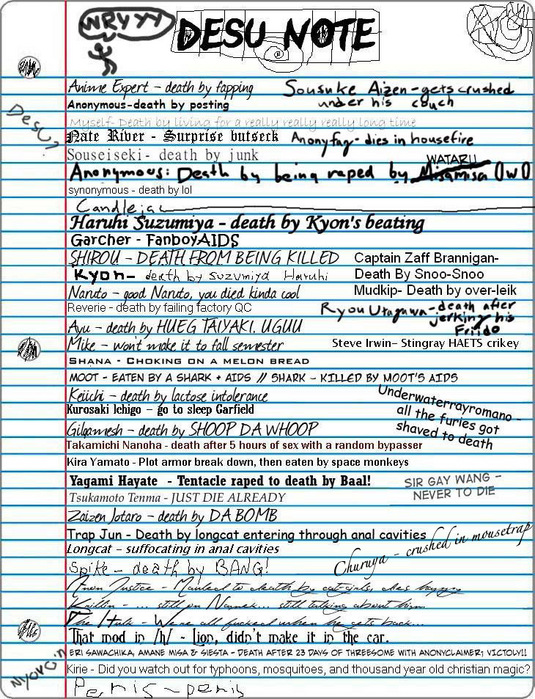 WRYYY
DESU NOTE
Anime Expert - death by fapping
Sousuke Aizen - gets crushed
under his couch
Anonymous-death by posting
Myself- Death by living for a really really really long time
Desu?
Nate River - Surprise butseck
Anonyfag - dies in housefire
Souseiseki- death by junk
WATARU
Anonymous: Death by being raped by Misamisa (lwO
synonymous - death by lol
Candlejac
Haruhi Suzumiya - death by Kyon's beating
Garcher - FanboyAIDS
SHIROU - DEATH FROM BEING KILLED
Captain Zaff Brannigan-
Kyon- death by Suzumiya Haruhi
Death By Snoo-Snoo
Naruto - good Naruto, you died kinda cool
Mudkip- Death by over-leik
Reverie - death by failing factory QC
Ryou Utagawa - death after
jerking his
Friido
Ayu - death by HUEG TAIYAKI. UGUU
Mike - won't make it to fall semester
Steve Irwin– Stingray HAETS crikey
Shana - Choking on a melon bread
MOOT - EATEN BY A SHARK + AIDS // SHARK - KILLED BY MOOT'S AIDS
Keiichi - death by lactose intolerance
Underwaterrayromano -
all the furies got
shaved to death
Kurosaki Ichigo - go to sleep Garfield
Gilgamesh - death by SHOOP DA WHOOP
Takamichi Nanoha - death after 5 hours of sex with a random bypasser
Kira Yamato - Plot armor break down, then eaten by space monkeys
Yagami Hayate - Tentacle raped to death by Baal!
SIR GAY WANG -
NEVER TO DIE
Tsukamoto Tenma - JUST DIE ALREADY
Zaizen Jotaro - death by DA BOMB
Trap Jun - Death by longcat entering through anal cavities
Longcat - suffocating in anal cavities
Churuya - crushed in mousetrap
Spike - death by BANG!
to death by
... still on Namek... still talking about him
The Hulk - We're all fucked when he gets back...
That mod in /h/ - Lion, didn't make it in the car.
Nyoro~n
ERI SAWACHIKA, AMANE MISA & SIESTA - DEATH AFTER 23 DAYS OF THREESOME WITH ANONYCLAIMER; VICTOLY!!
Kirie - Did you watch out for typhoons, mosquitoes, and thousand year old christian magic?
Penis - penis